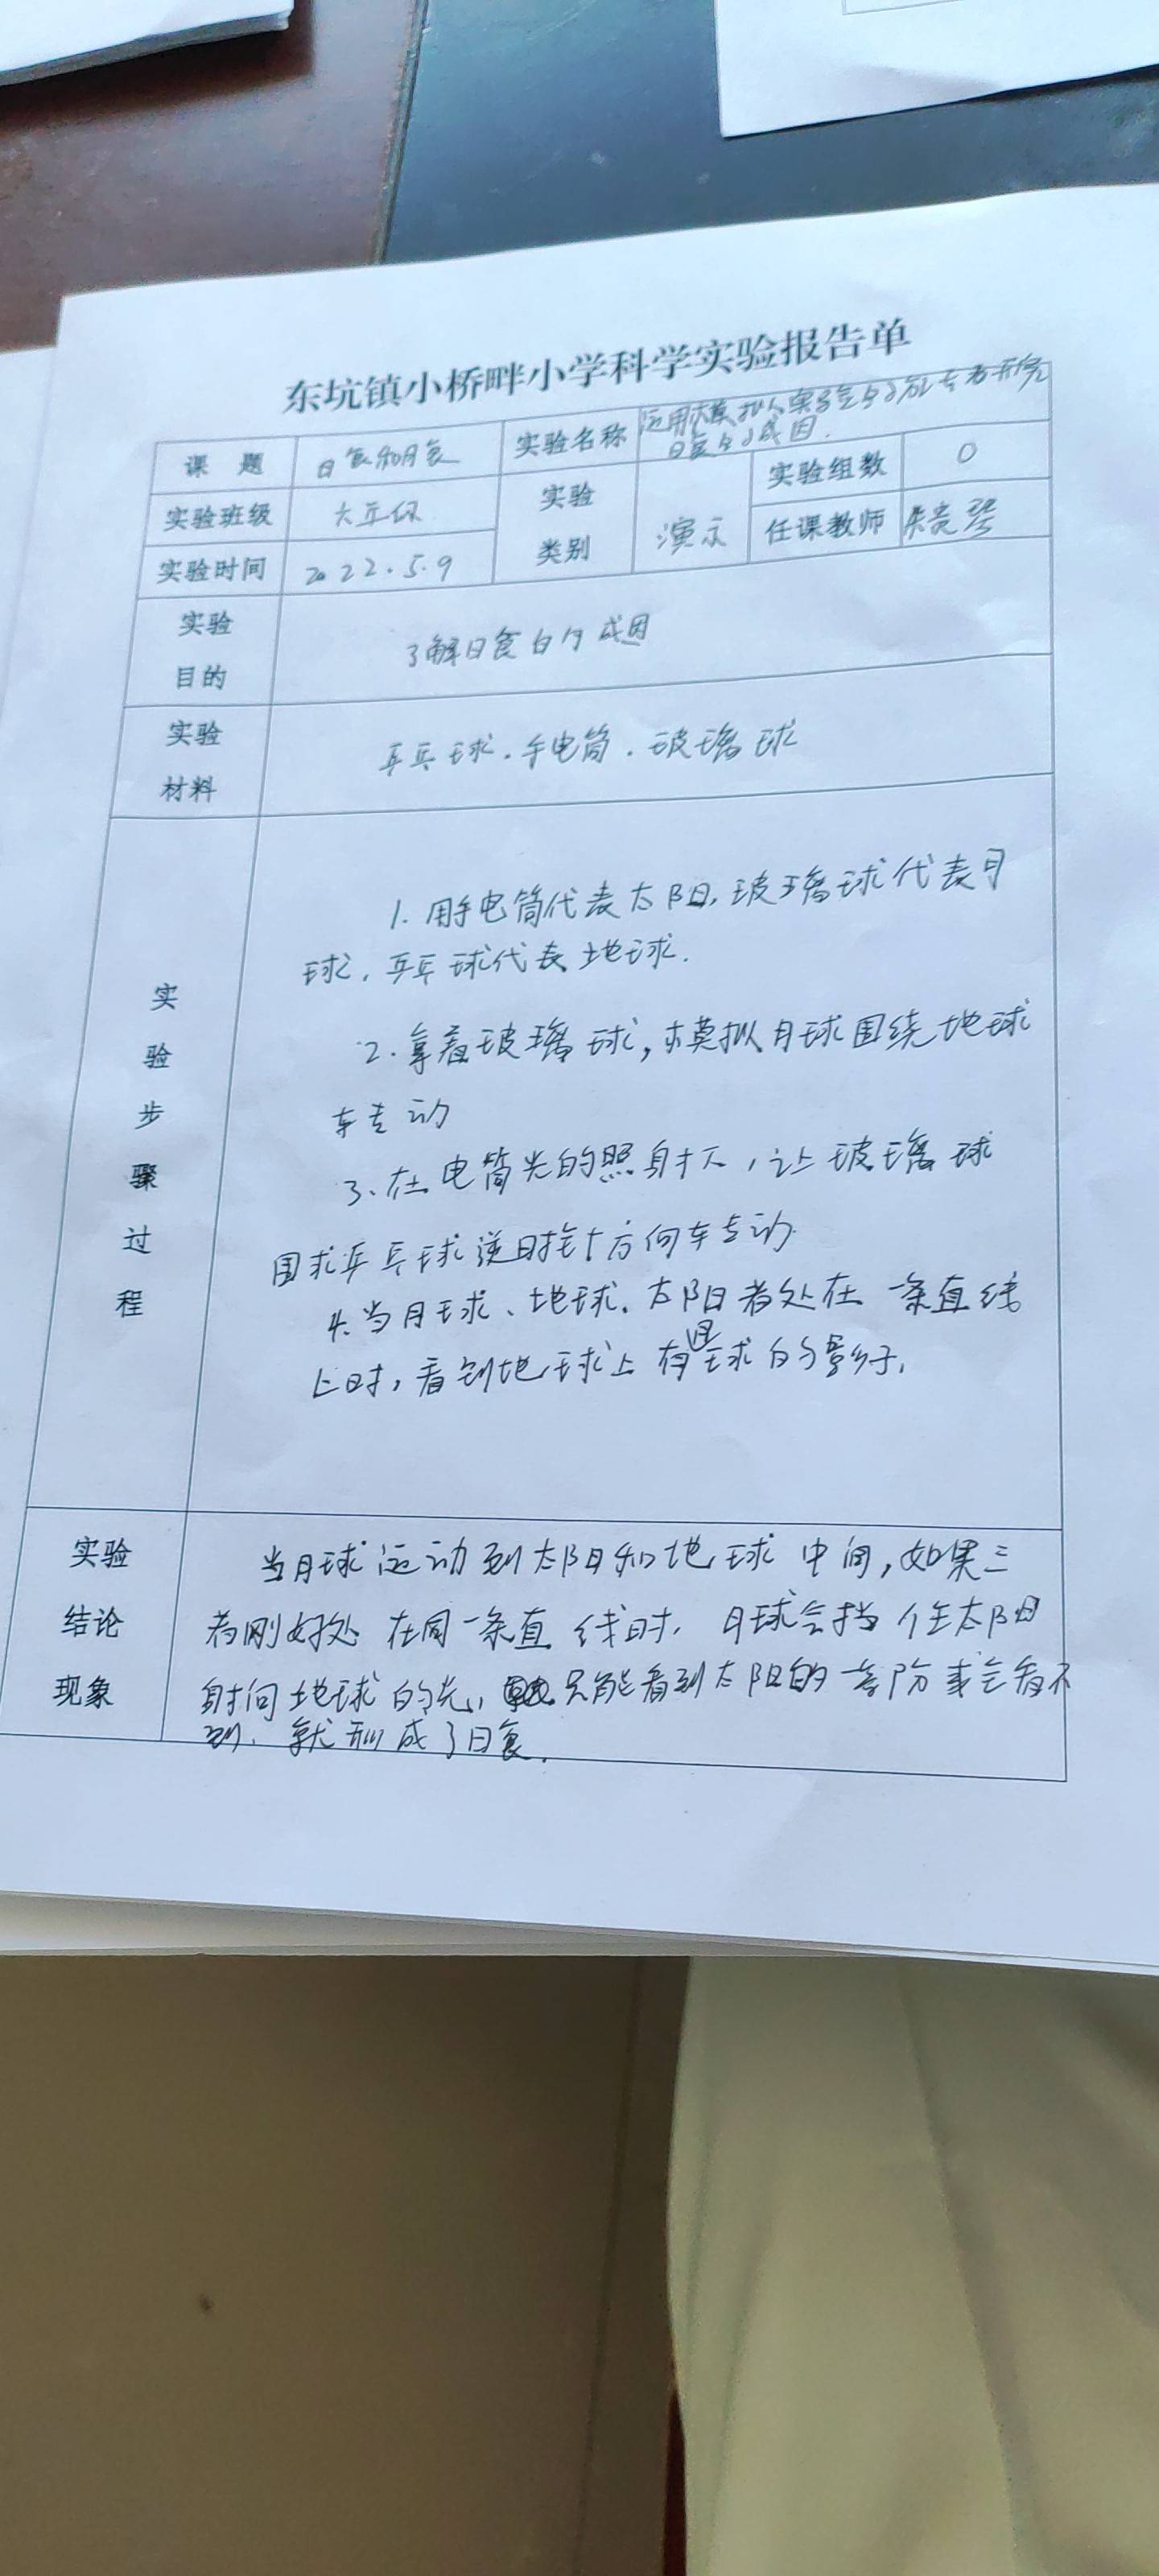 东坑镇小桥畔小学科学实验报告单
课 题 日食和月食 实验名称 运用模拟实验的方法去研究
日食的成因.
实验班级 六年级 实验 类别 演示 实验组数 0
实验时间 2022.5.9 任课教师
实验 目的 了解日食的成因
实验 材料 乒乓球.手电筒.玻璃球
实验步骤过程
1.用手电筒代表太阳,玻璃球代表月
球,乒乓球代表地球.
2.拿着玻璃球,模拟月球围绕地球
转动
3.在电筒光的照射下,让玻璃球
围求乒乓球逆时针方向转动.
4.当月球、地球.太阳者处在一条直线
上时,看到地球上有月球的影子.
实验 结论 现象
当月球运动到太阳和地球中间,如果三
者刚好处在同一条直线时,月球会挡住太阳
射向地球的光,只能看到太阳的一部份或会看不
到,就形成了日食.